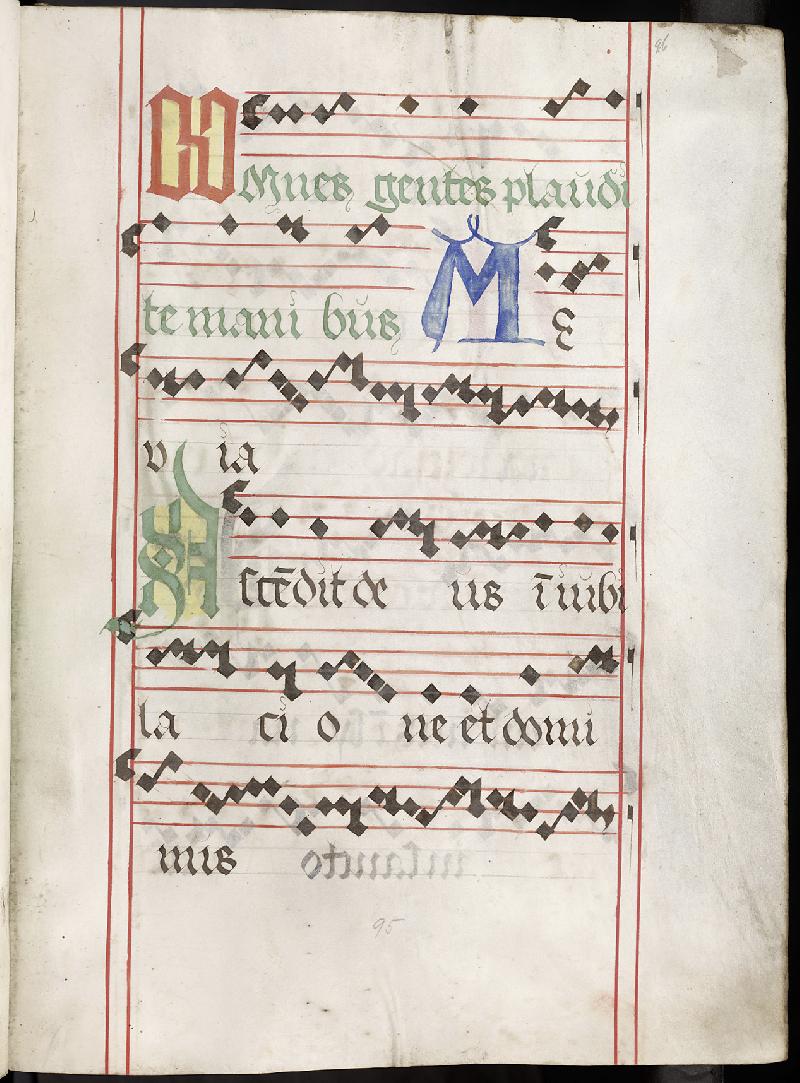 96
OMnes gentes plaudi
te manu bus A E
v ia
Ascēdit de us ī iubi
la ci o ne et domi
nus
95